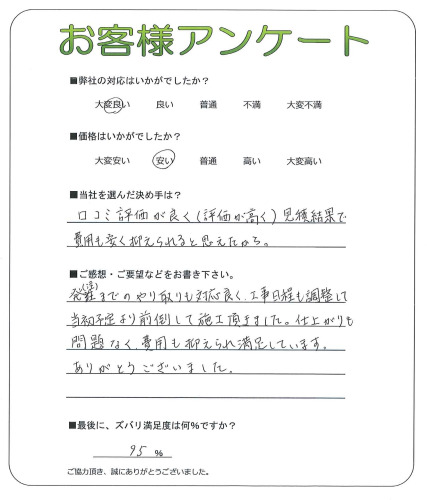 お客様アンケート
■弊社の対応はいかがでしたか?
大変良い 良い 普通 不満 大変不満
■価格はいかがでしたか?
大変安い 安い 普通 高い 大変高い
■当社を選んだ決め手は?
口コミ評価が良く(評価が高く)見積結果で
費用も安く抑えられると思えたから。
■ご感想・ご要望などをお書き下さい。
発注までのやり取りも対応良く、工事日程も調整して
当初予定より前倒して施工頂きました。仕上がりも
問題なく、費用も抑えられ満足しています。
ありがとうございました。
■最後に、ズバリ満足度は何%ですか?
95 %
ご協力頂き、誠にありがとうございました。